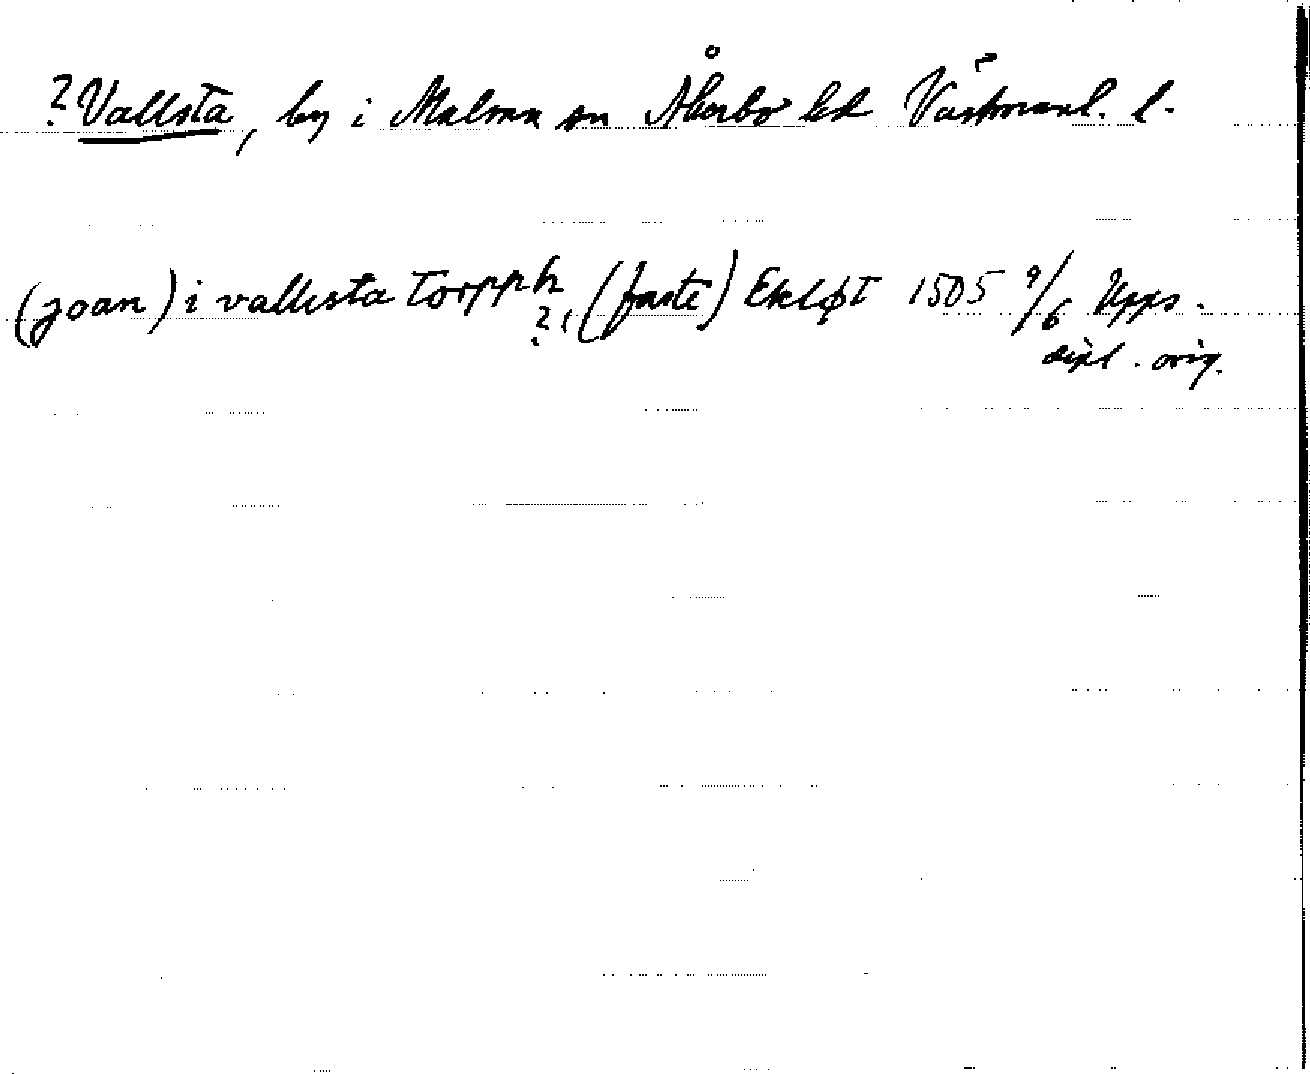 ? Vallsta, by i Malma sn Åkerbo hd Västmanl. l.
(joan) i vallista torpph ?, (faste) Ekløt 1505 9/6 Upps.
dipl. orig.